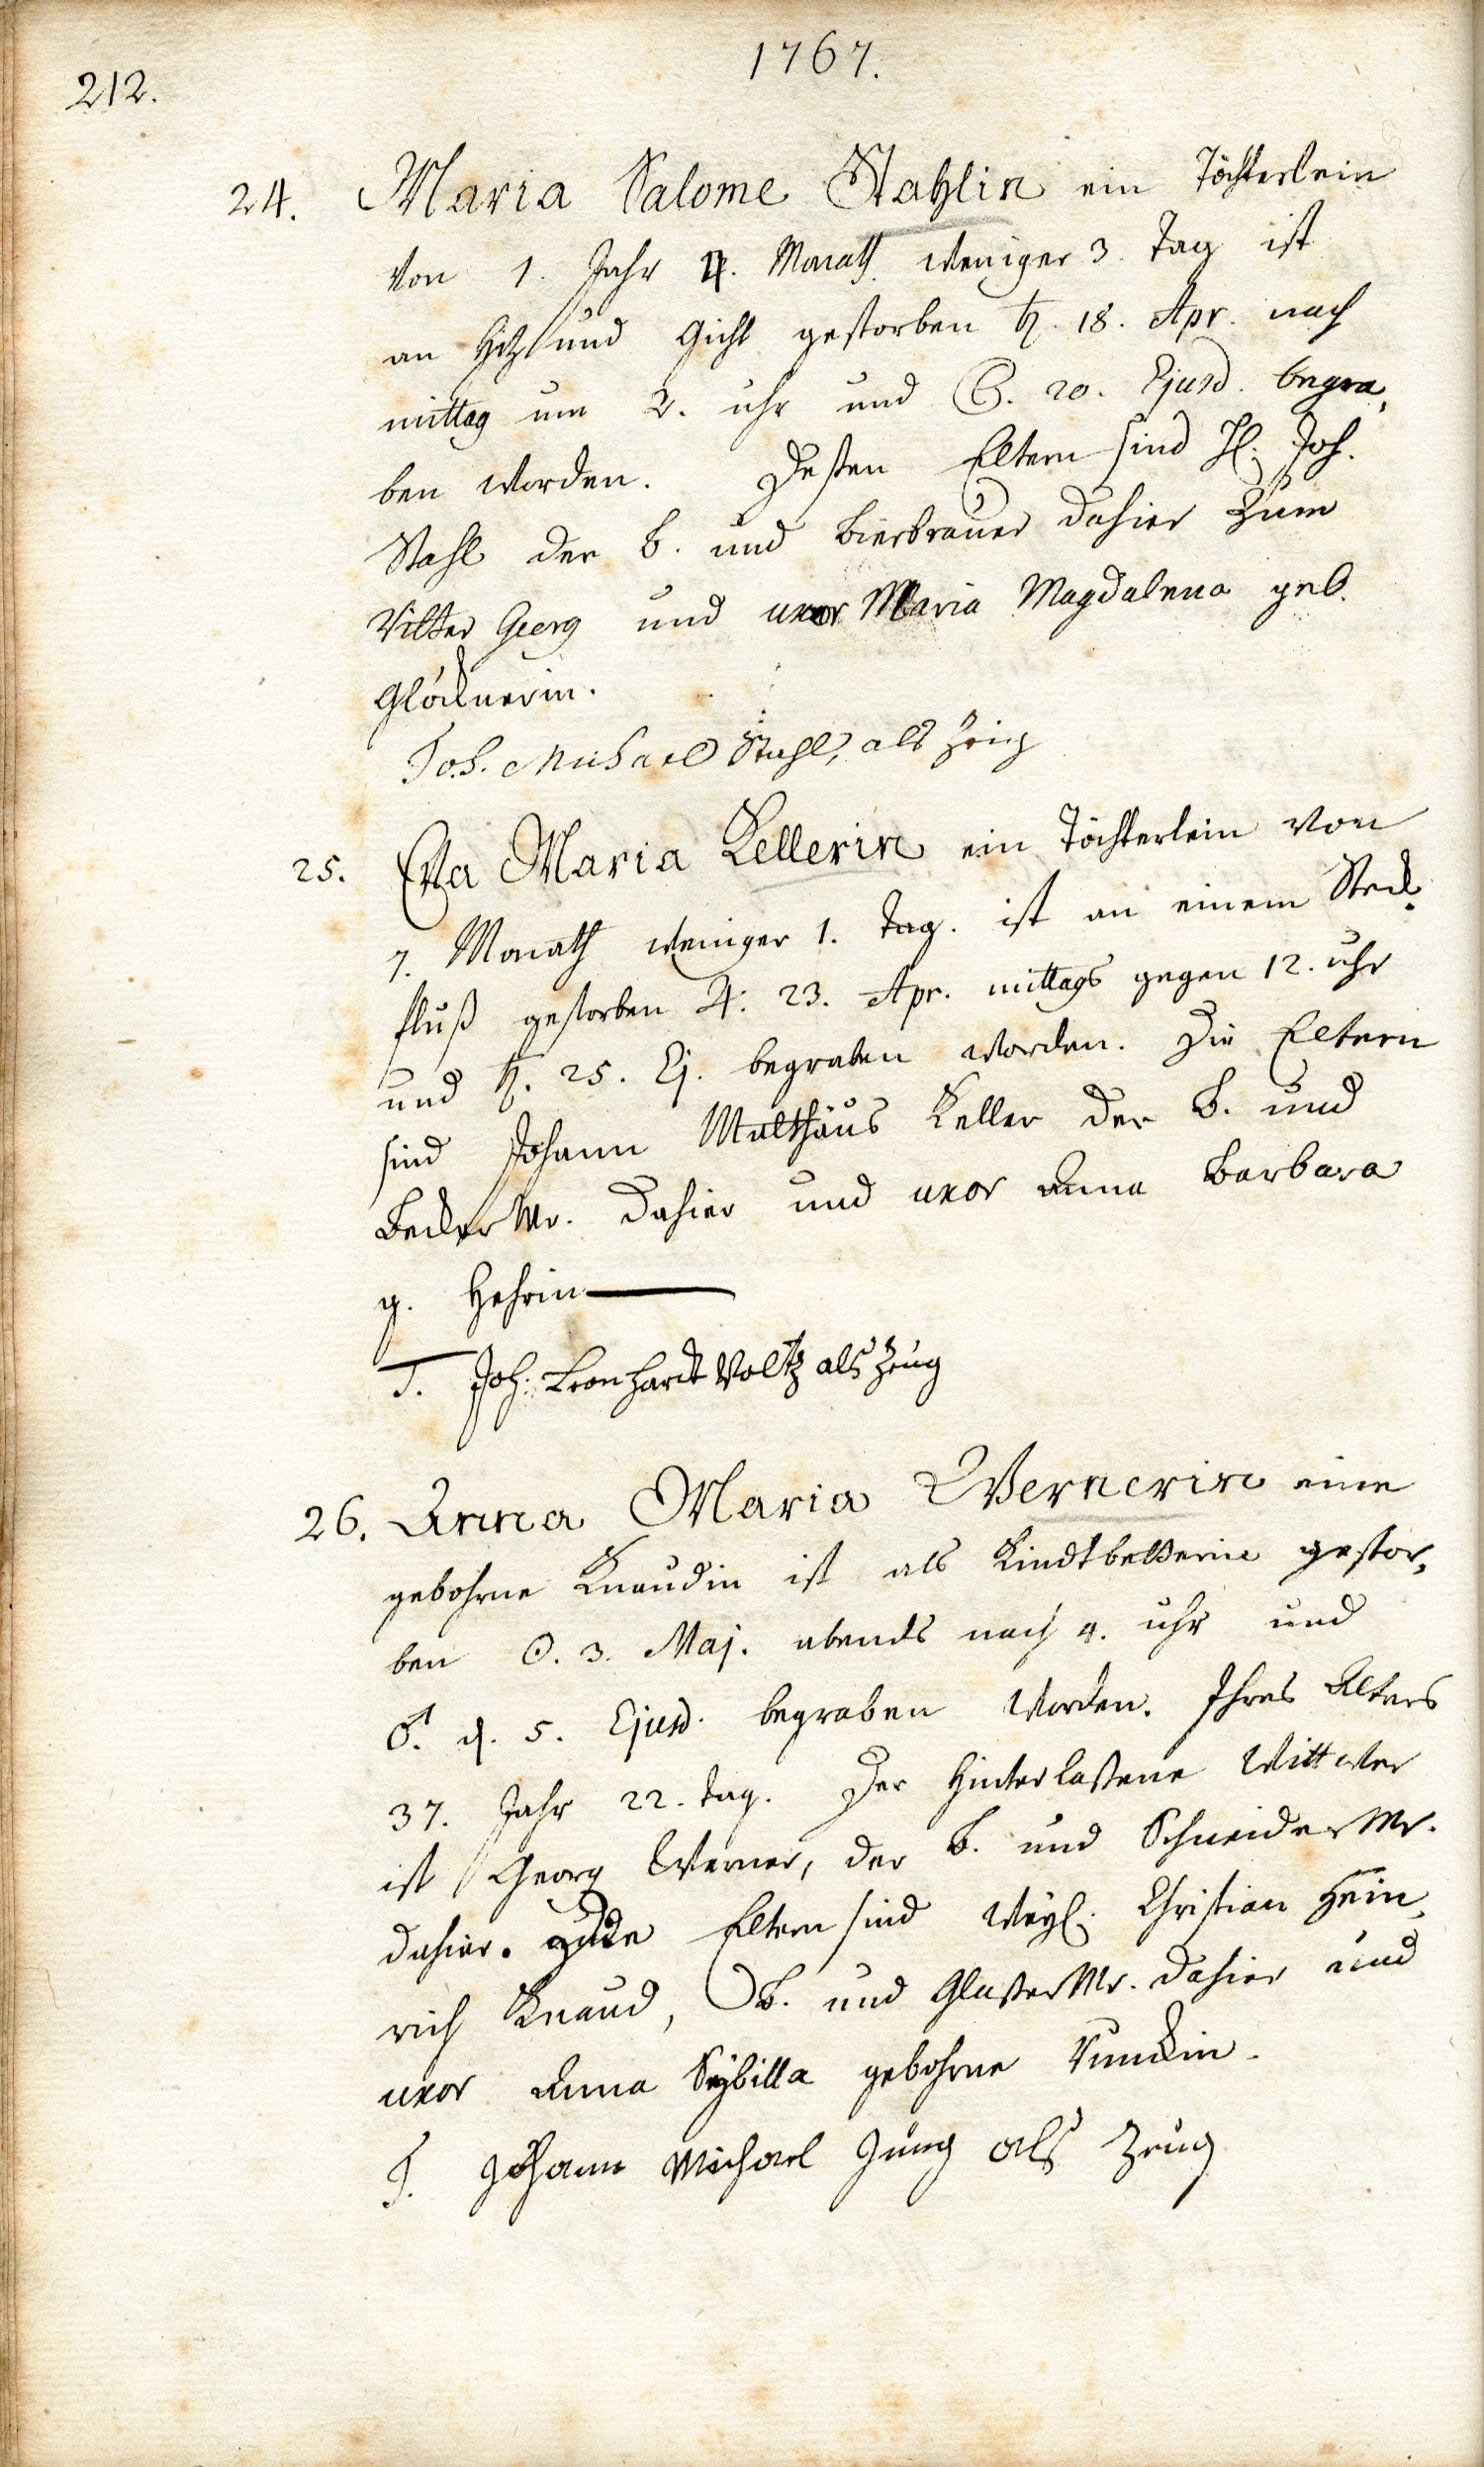 1767.
212.
24. Maria Salome Stahlin ein Töchterlein
von 1. Jahr 4. Monath weniger 3. Tag ist
an Hitz und Gicht gestorben ♄. 18. Apr. nach
mittag um 2. uhr und ☾. 20. Ejusd. begra,
ben worden. Dessen Eltern sind H. Joh.
Stahl der b. und bierbrauer dahier zum
Ritter Georg und uxor Maria Magdalena geb.
Glöcknerin.
T. Joh. Michael Stahl, als Zeug
25. Eva Maria Kellerin ein Töchterlein von
7. Monath weniger 1. Tag. ist an einem Steck
fluß gestorben ♃. 23. Apr. mittags gegen 12. uhr
und ♄. 25. Ej. begraben worden. Die Eltern
sind Johann Matthäus Keller der b. und
Becker Mr. dahier und uxor Anna Barbara
g. Hehrin
T. Joh: Leonhardt Voltz als Zeug
26. Anna Maria Wernerin eine
gebohrne Knaudin ist als Kindtbetterin gestor,
ben ☉. 3. Maj. abends nach 4. uhr und
♂. d. 5. Ejusd. begraben worden. Ihres Alters
37. Jahr 22. tag. Der hinterlaßene Wittwer
ist Georg Werner, der b. und Schneider Mr.
dahier. Eltern sind weyl. Christian Hein,
rich Knaud, b. und Glaßer Mr. dahier und
uxor Anna Sÿbilla gebohrne
T. Johann Michael Jung als Zeug